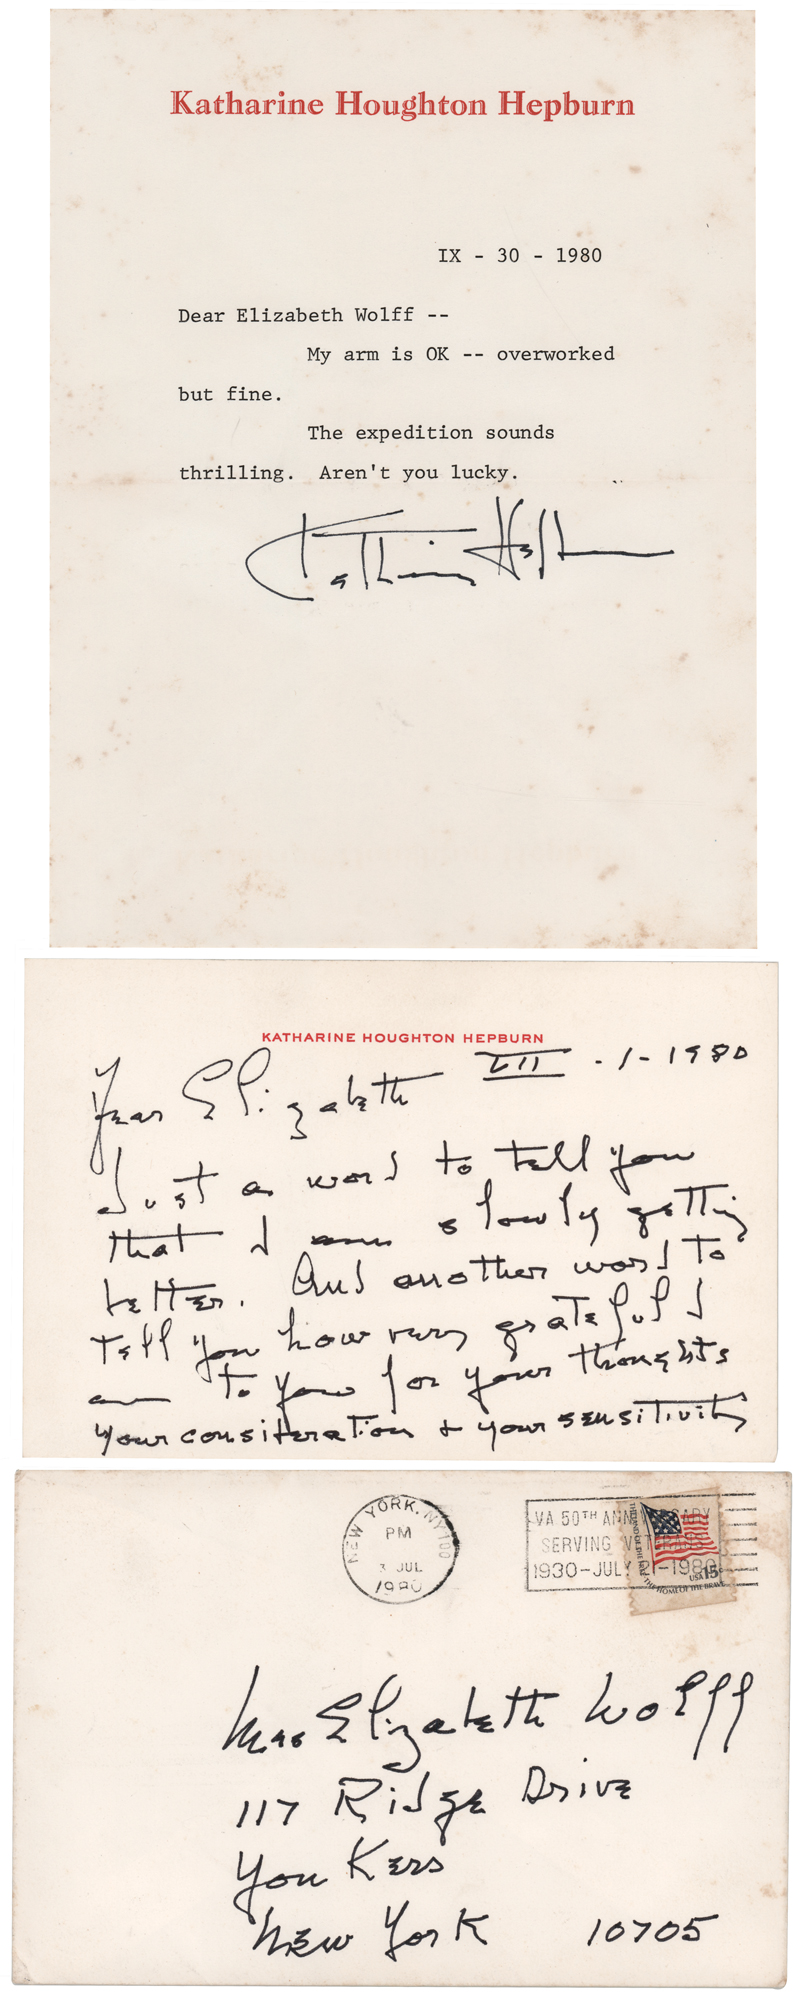 Katharine Houghton Hepburn
IX - 30 - 1980
Dear Elizabeth Wolff --
My arm is OK -- overworked
but fine.
The expedition sounds
thrilling. Aren't you lucky.
Katharine Hepburn
KATHARINE HOUGHTON HEPBURN
VII - 1 - 1980
Dear Elizabeth
Just a word to tell you
that I am slowly getting
better. And another word to
tell you how very grateful I
am to you for your thoughts
your consideration + your sensitivity
NEW YORK, NY 100
PM
3 JUL
1980
VA 50TH ANNIVERSARY
SERVING VETERANS
1930-JULY 21-1980
THE LAND OF THE FREE THE HOME OF THE BRAVE
USA 15c
Mrs Elizabeth Wolff
117 Ridge Drive
Yonkers
New York 10705